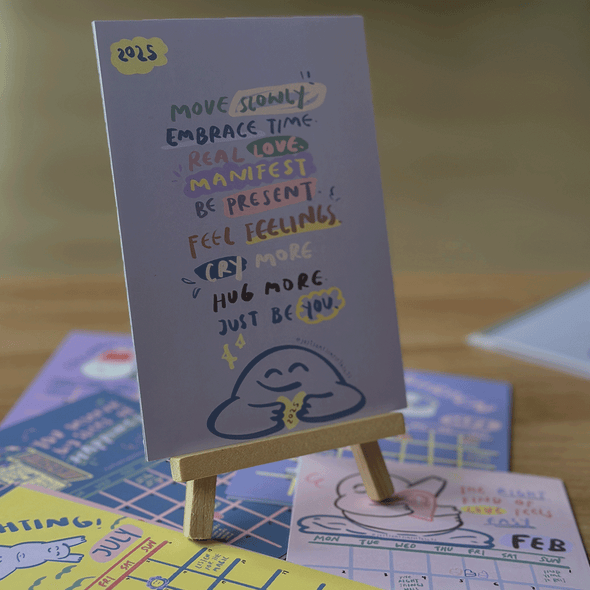 2025
MOVE SLOWLY
EMBRACE TIME.
REAL LOVE.
MANIFEST
BE PRESENT.
FEEL FEELINGS.
CRY MORE
HUG MORE
JUST BE YOU.
HTING!
JULY
SUN
THE RIGHT
KIND OF
LOVE FEELS
EASY
FEB
MON TUE WED THU FRI SAT SUN